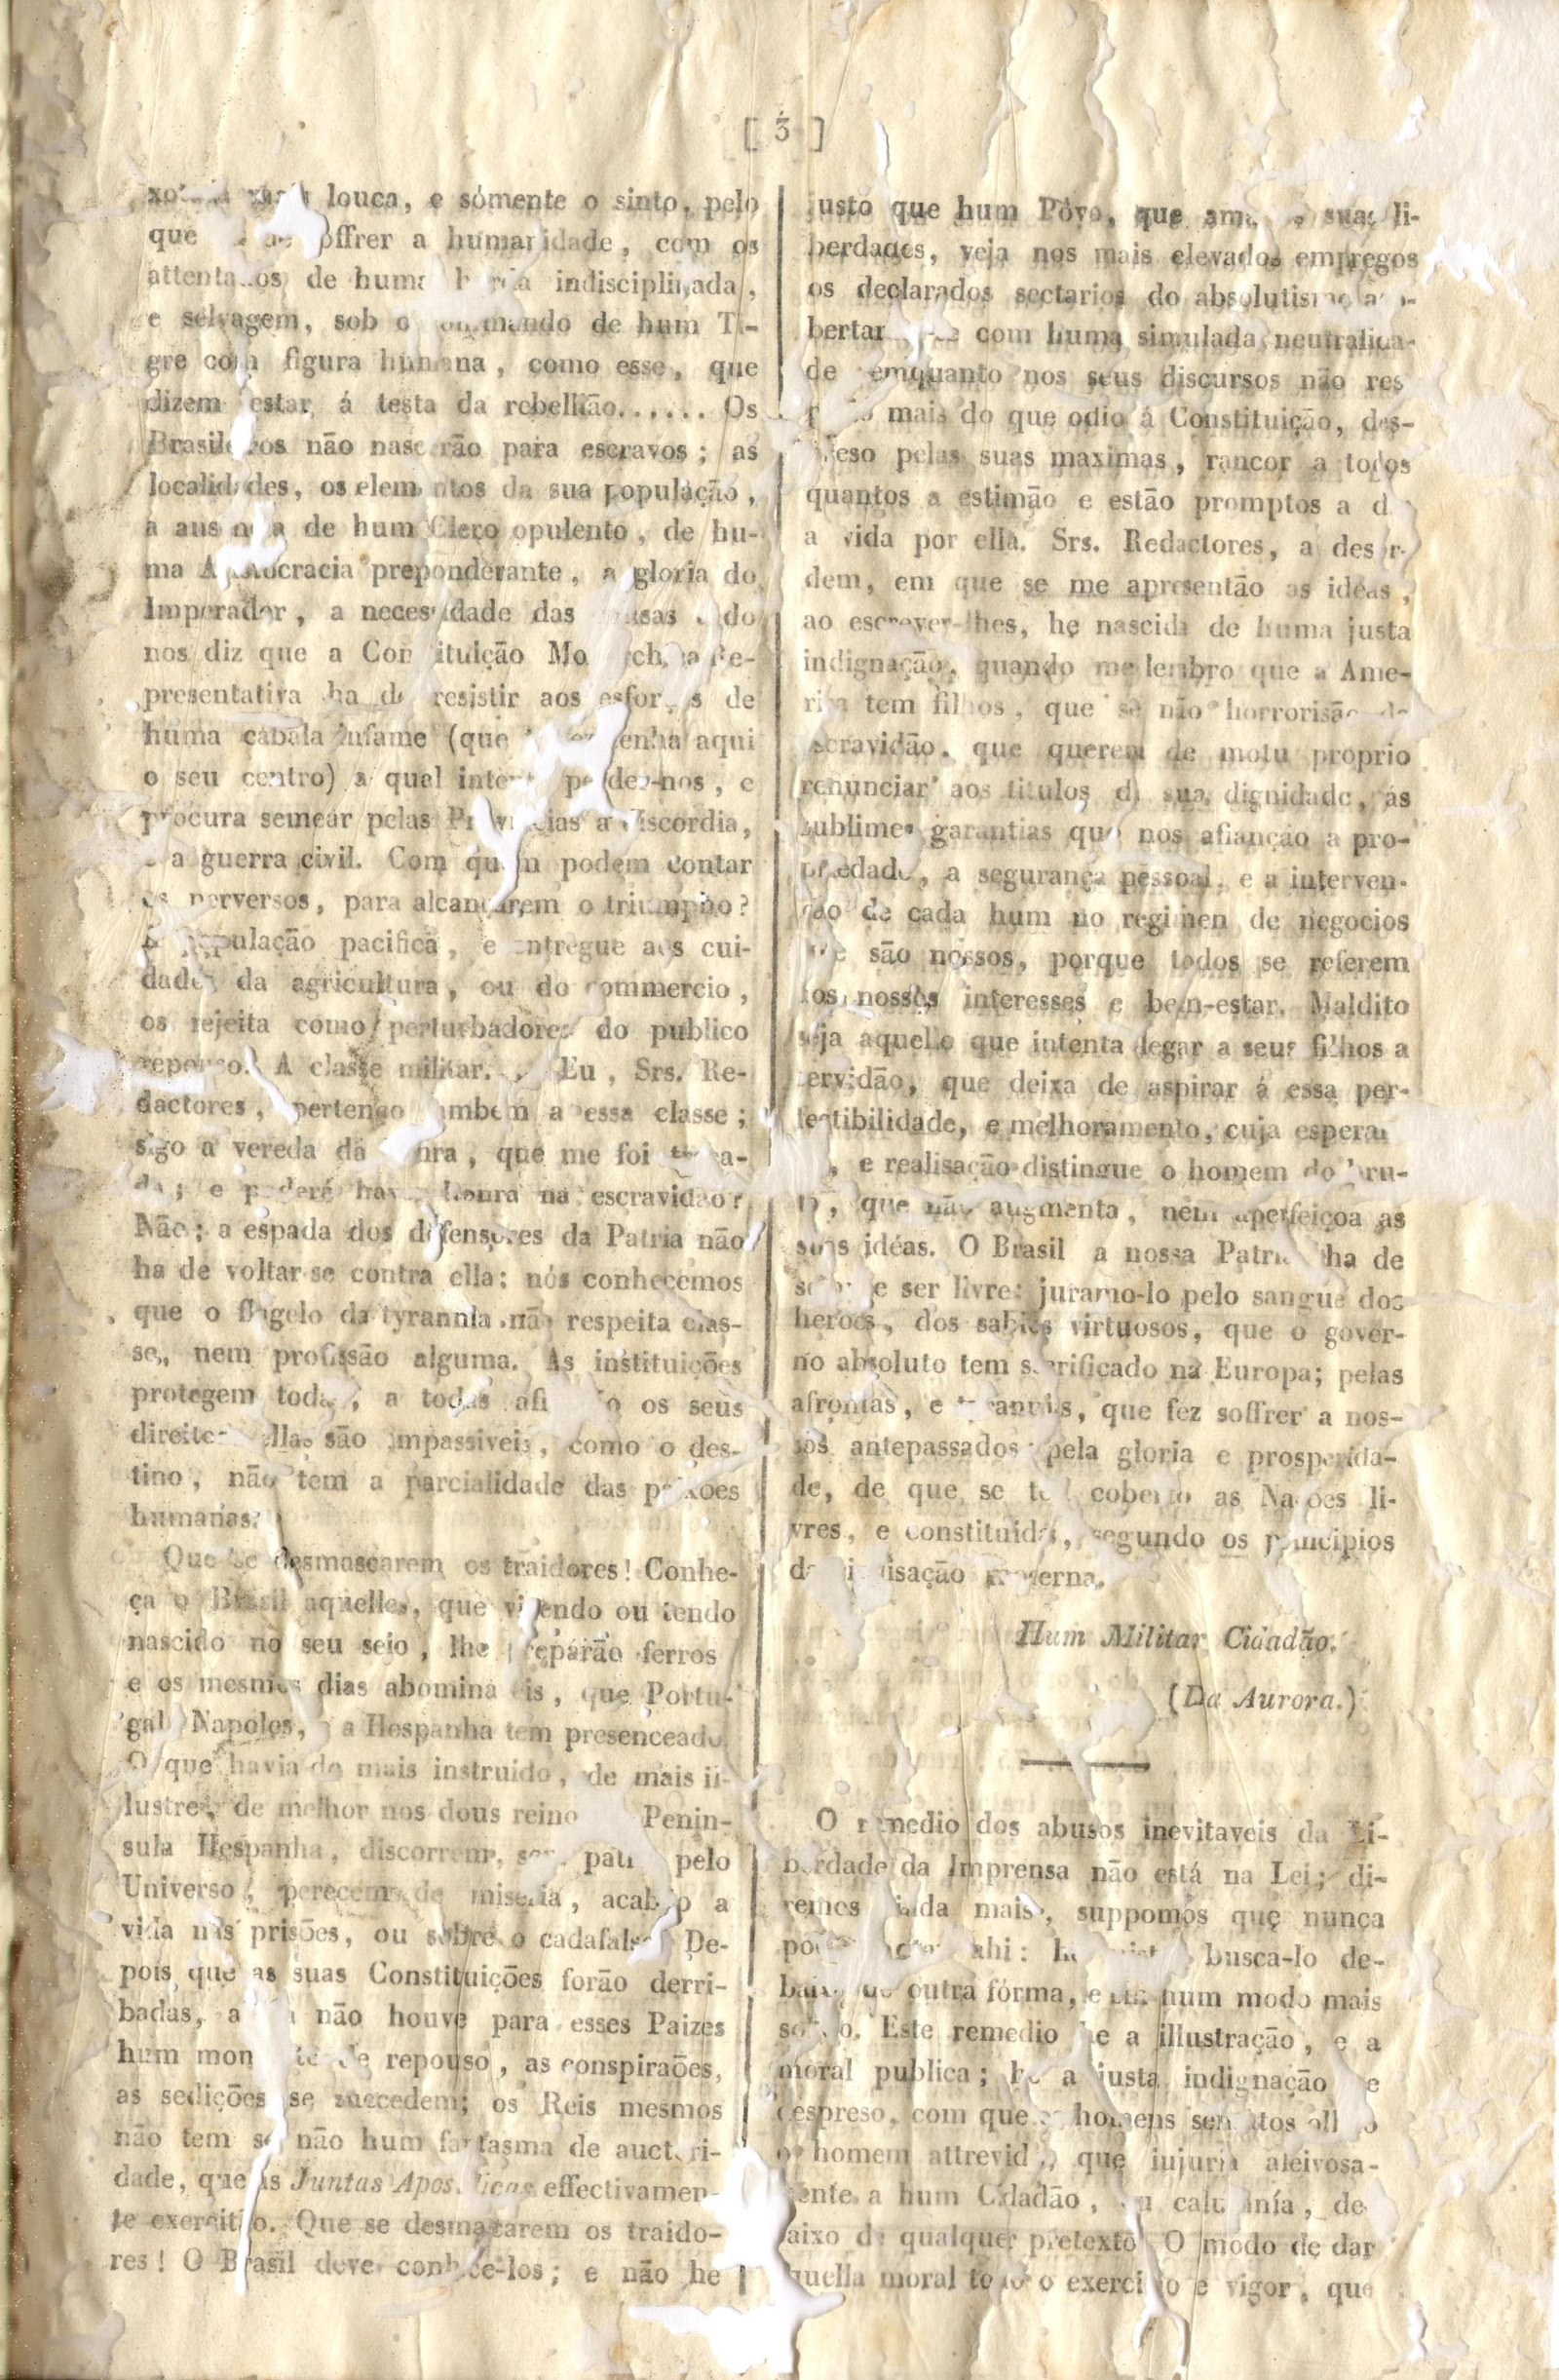 [ 3 ]
louca, e sómente o sinto, pelo
que a humanidade, com os
de huma indisciplinada,
e selvagem, sob o de hum Ti-
gre com figura humana, como esse, que
dizem estar á testa da rebelião...... Os
Brasileiros não nascerão para escravos; as
localidades, os elementos da sua população,
a ausencia de hum Clero opulento, de hu-
ma preponderante, a gloria do
Imperador, a necessidade das do
nos diz que a Constituição Re-
presentativa ha de resistir aos esforços de
huma cabala infame (que tenha aqui
o seu centro) a qual perder-nos, e
procura semear pelas Provincias a discordia,
a guerra civil. Com quem podem contar
os perversos, para alcançarem o triumpho?
A população pacifica, e entregue aos cui-
dados da agricultura, ou do commercio,
os rejeita como perturbadores do publico
repouso. A classe militar. Eu, Srs. Re-
dactores, pertenço tambem a essa classe;
sigo a vereda da honra, que me foi
e poderá haver honra na escravidão?
Não; a espada dos defensores da Patria não
ha de voltar-se contra ella: nós conhecemos
que o flagelo da tyrannia não respeita clas-
se, nem profissão alguma. As instituições
protegem todas, a todas os seus
direitos ellas são impassiveis, como o des-
tino, não tem a parcialidade das paixões
humanas.
Que se desmascarem os traidores! Conhe-
ça o Brasil aquelles, que vivendo ou tendo
nascido no seu seio, lhe preparão ferros
e os mesmos dias abominaveis, que Portu-
gal, Napoles, a Hespanha tem presenceado.
O que havia de mais instruido, de mais il-
lustre, de melhor nos dous reinos Penin-
sula Hespanha, discorrem, sem patria pelo
Universo, perecem de miseria, acabão a
vida nas prisões, ou sobre o cadafalso. De-
pois que as suas Constituições forão derri-
badas, não houve para esses Paizes
hum momento de repouso, as conspiraões,
as sedições se succedem; os Reis mesmos
não tem se não hum fantasma de auctori-
dade, que as Juntas Apostolicas effectivamen-
te exercitão. Que se desmacarem os traido-
res! O Brasil deve conhece-los; e não he
justo que hum Póvo, que ama suas li-
berdades, veja nos mais elevados empregos
os declarados sectarios do absolutismo
com huma simulada neutralida-
de emquanto nos seus discursos não
mais do que odio á Constituição, des-
preso pelas suas maximas, rancor a todos
quantos a estimão e estão promptos a dar
a vida por ella. Srs. Redactores, a desor-
dem, em que se me apresentão as idéas,
ao escrever-lhes, he nascida de huma justa
indignação, quando me lembro que a Ame-
rica tem filhos, que se não horrorisão da
escravidão, que querem de motu proprio
renunciar aos titulos da sua dignidade, ás
sublimes garantias que nos afianção a pro-
priedade, a segurança pessoal, e a interven-
ção de cada hum no regimen de negocios
que são nossos, porque todos se referem
aos nossos interesses e bem-estar. Maldito
seja aquelle que intenta legar a seus filhos a
servidão, que deixa de aspirar á essa per-
fectibilidade, e melhoramento, cuja esperan
e realisação distingue o homem do bru-
to, que não augmenta, nem aperfeiçoa as
suas idéas. O Brasil a nossa Patria ha de
sempre ser livre: juramo-lo pelo sangue dos
heroes, dos sabios virtuosos, que o gover-
no absoluto tem sacrificado na Europa; pelas
afrontas, e tyrannias, que fez soffrer a nos-
sos antepassados pela gloria e prosperida-
de, de que se tem coberto as Nações li-
vres, e constituidas, segundo os principios
da civilisação moderna.
Hum Militar Cidadão.
(Da Aurora.)
O remedio dos abusos inevitaveis da Li-
berdade da Imprensa não está na Lei; di-
remos ainda mais, suppomos que nunca
ahi: busca-lo de-
baixo de outra fórma, e hum modo mais
solido. Este remedio he a illustração, e a
moral publica; he a justa indignação e
despreso, com que os homens sensatos olhão
o homem attrevido, que injuria aleivosa-
mente a hum Cidadão, calumnía, de
baixo de qualquer pretexto O modo de dar
áquella moral todo o exercicio e vigor, que